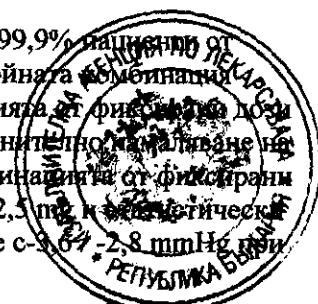 99,9% пациенти от
ейната комбинация
ията от фиксирани дози
нително намаляване на
инацията от фиксирани
2,5 mg и статистически
е с -3,6/ -2,8 mmHg при
АГЕНЦИЯ ПО ЛЕКАРСТВАТА
РЕПУБЛИКА БЪЛГАРИЯ